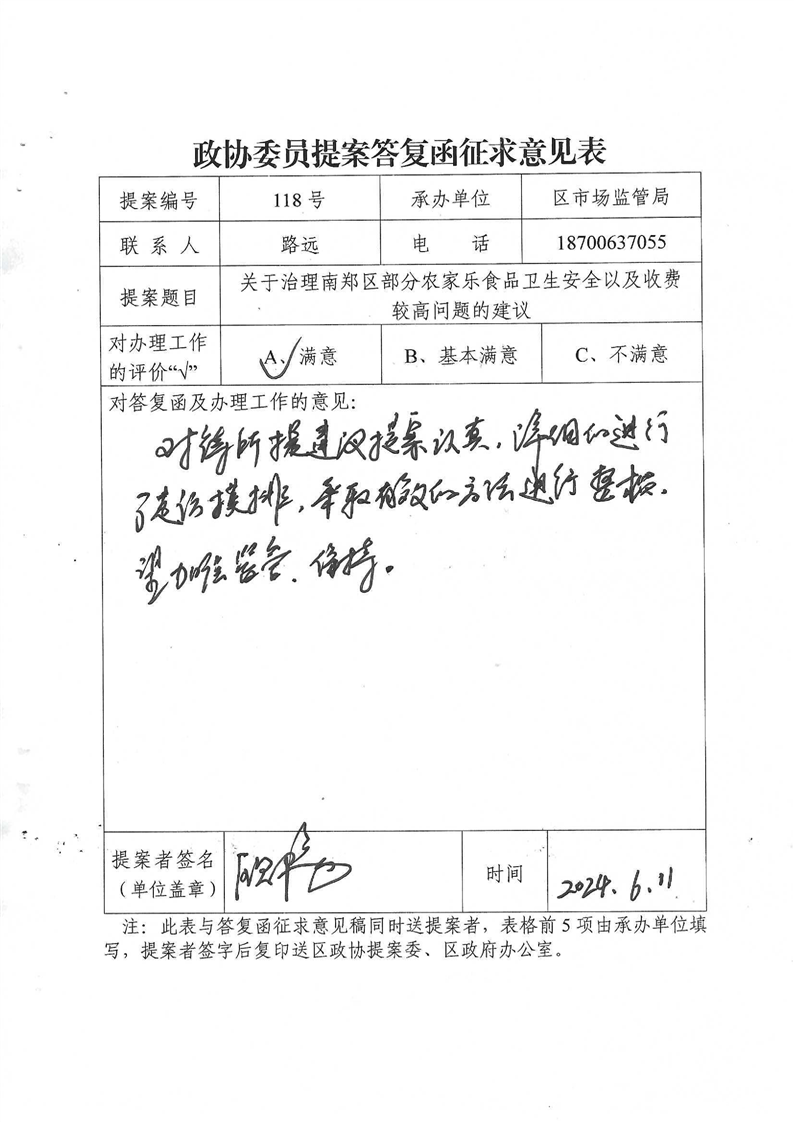 政协委员提案答复函征求意见表
提案编号 118号 承办单位 区市场监管局
联系人 路远 电话 18700637055
提案题目 关于治理南郑区部分农家乐食品卫生安全以及收费
较高问题的建议
对办理工作
的评价“√” A、√满意 B、基本满意 C、不满意
对答复函及办理工作的意见:
对待所提建议提案认真,详细的进行
了走访摸排,采取有效的方法进行整改。
望加强监管、保持。
提案者签名
(单位盖章) 时间 2024.6.11
注:此表与答复函征求意见稿同时送提案者,表格前5项由承办单位填
写,提案者签字后复印送区政协提案委、区政府办公室。